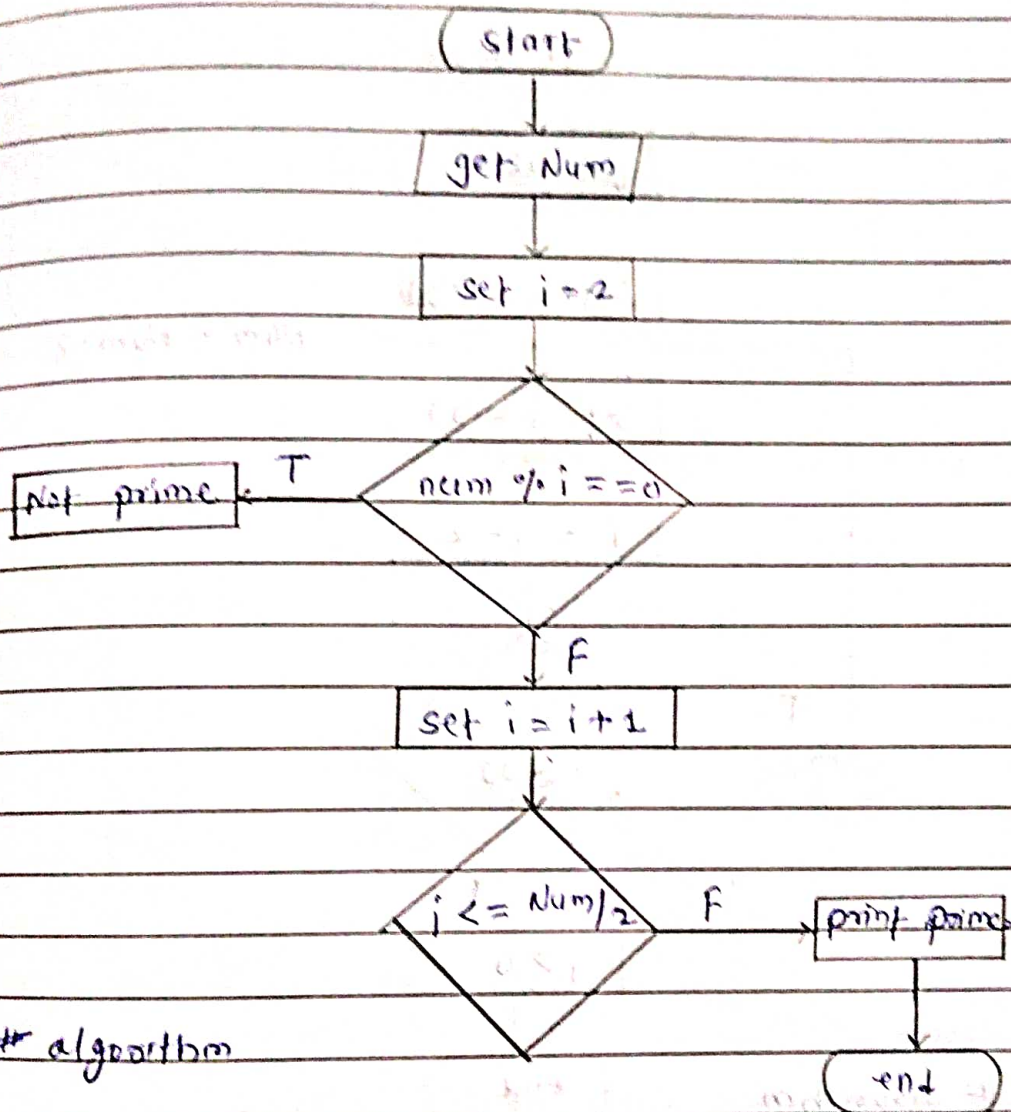 start
get Num
set i = 2
num % i == 0
T
Not prime
F
set i = i + 1
i <= Num/2
F
print prime
# algorithm
end